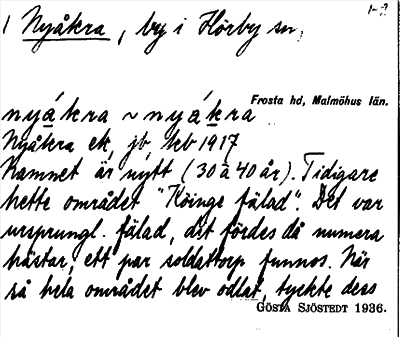 1 Nyåkra, by i Hörby sn.
1-2
Frosta hd, Malmöhus län.
nyákra ~ nyákra
Nyåkra ek, jb, kb 1917
Namnet är nytt (30 à 40 år). Tidigare
hette området "Köinge fälad". Det var
ursprungl. fälad, dit fördes då numera
hästar, ett par soldattorp funnos. När
så hela området blev odlat, tyckte dess
GÖSTA SJÖSTEDT 1936.